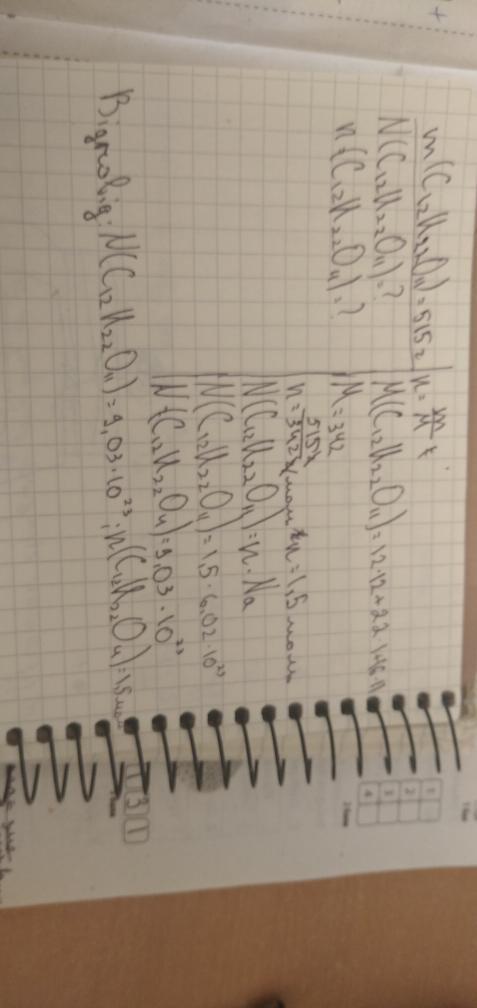 m(C₁₂H₂₂O₁₁)=515г
N(C₁₂H₂₂O₁₁)=?
n(C₁₂H₂₂O₁₁)=?
n=m/M
M(C₁₂H₂₂O₁₁)=12·12+22·1+16·11
M=342
n=515г/342г/моль n=1,5 моль
N(C₁₂H₂₂O₁₁)=n·Na
N(C₁₂H₂₂O₁₁)=1,5·6,02·10²³
N(C₁₂H₂₂O₁₁)=9,03·10²³
Відповідь: N(C₁₂H₂₂O₁₁)=9,03·10²³; n(C₁₂H₂₂O₁₁)=1,5моль
1 2 3 4
1 3 1